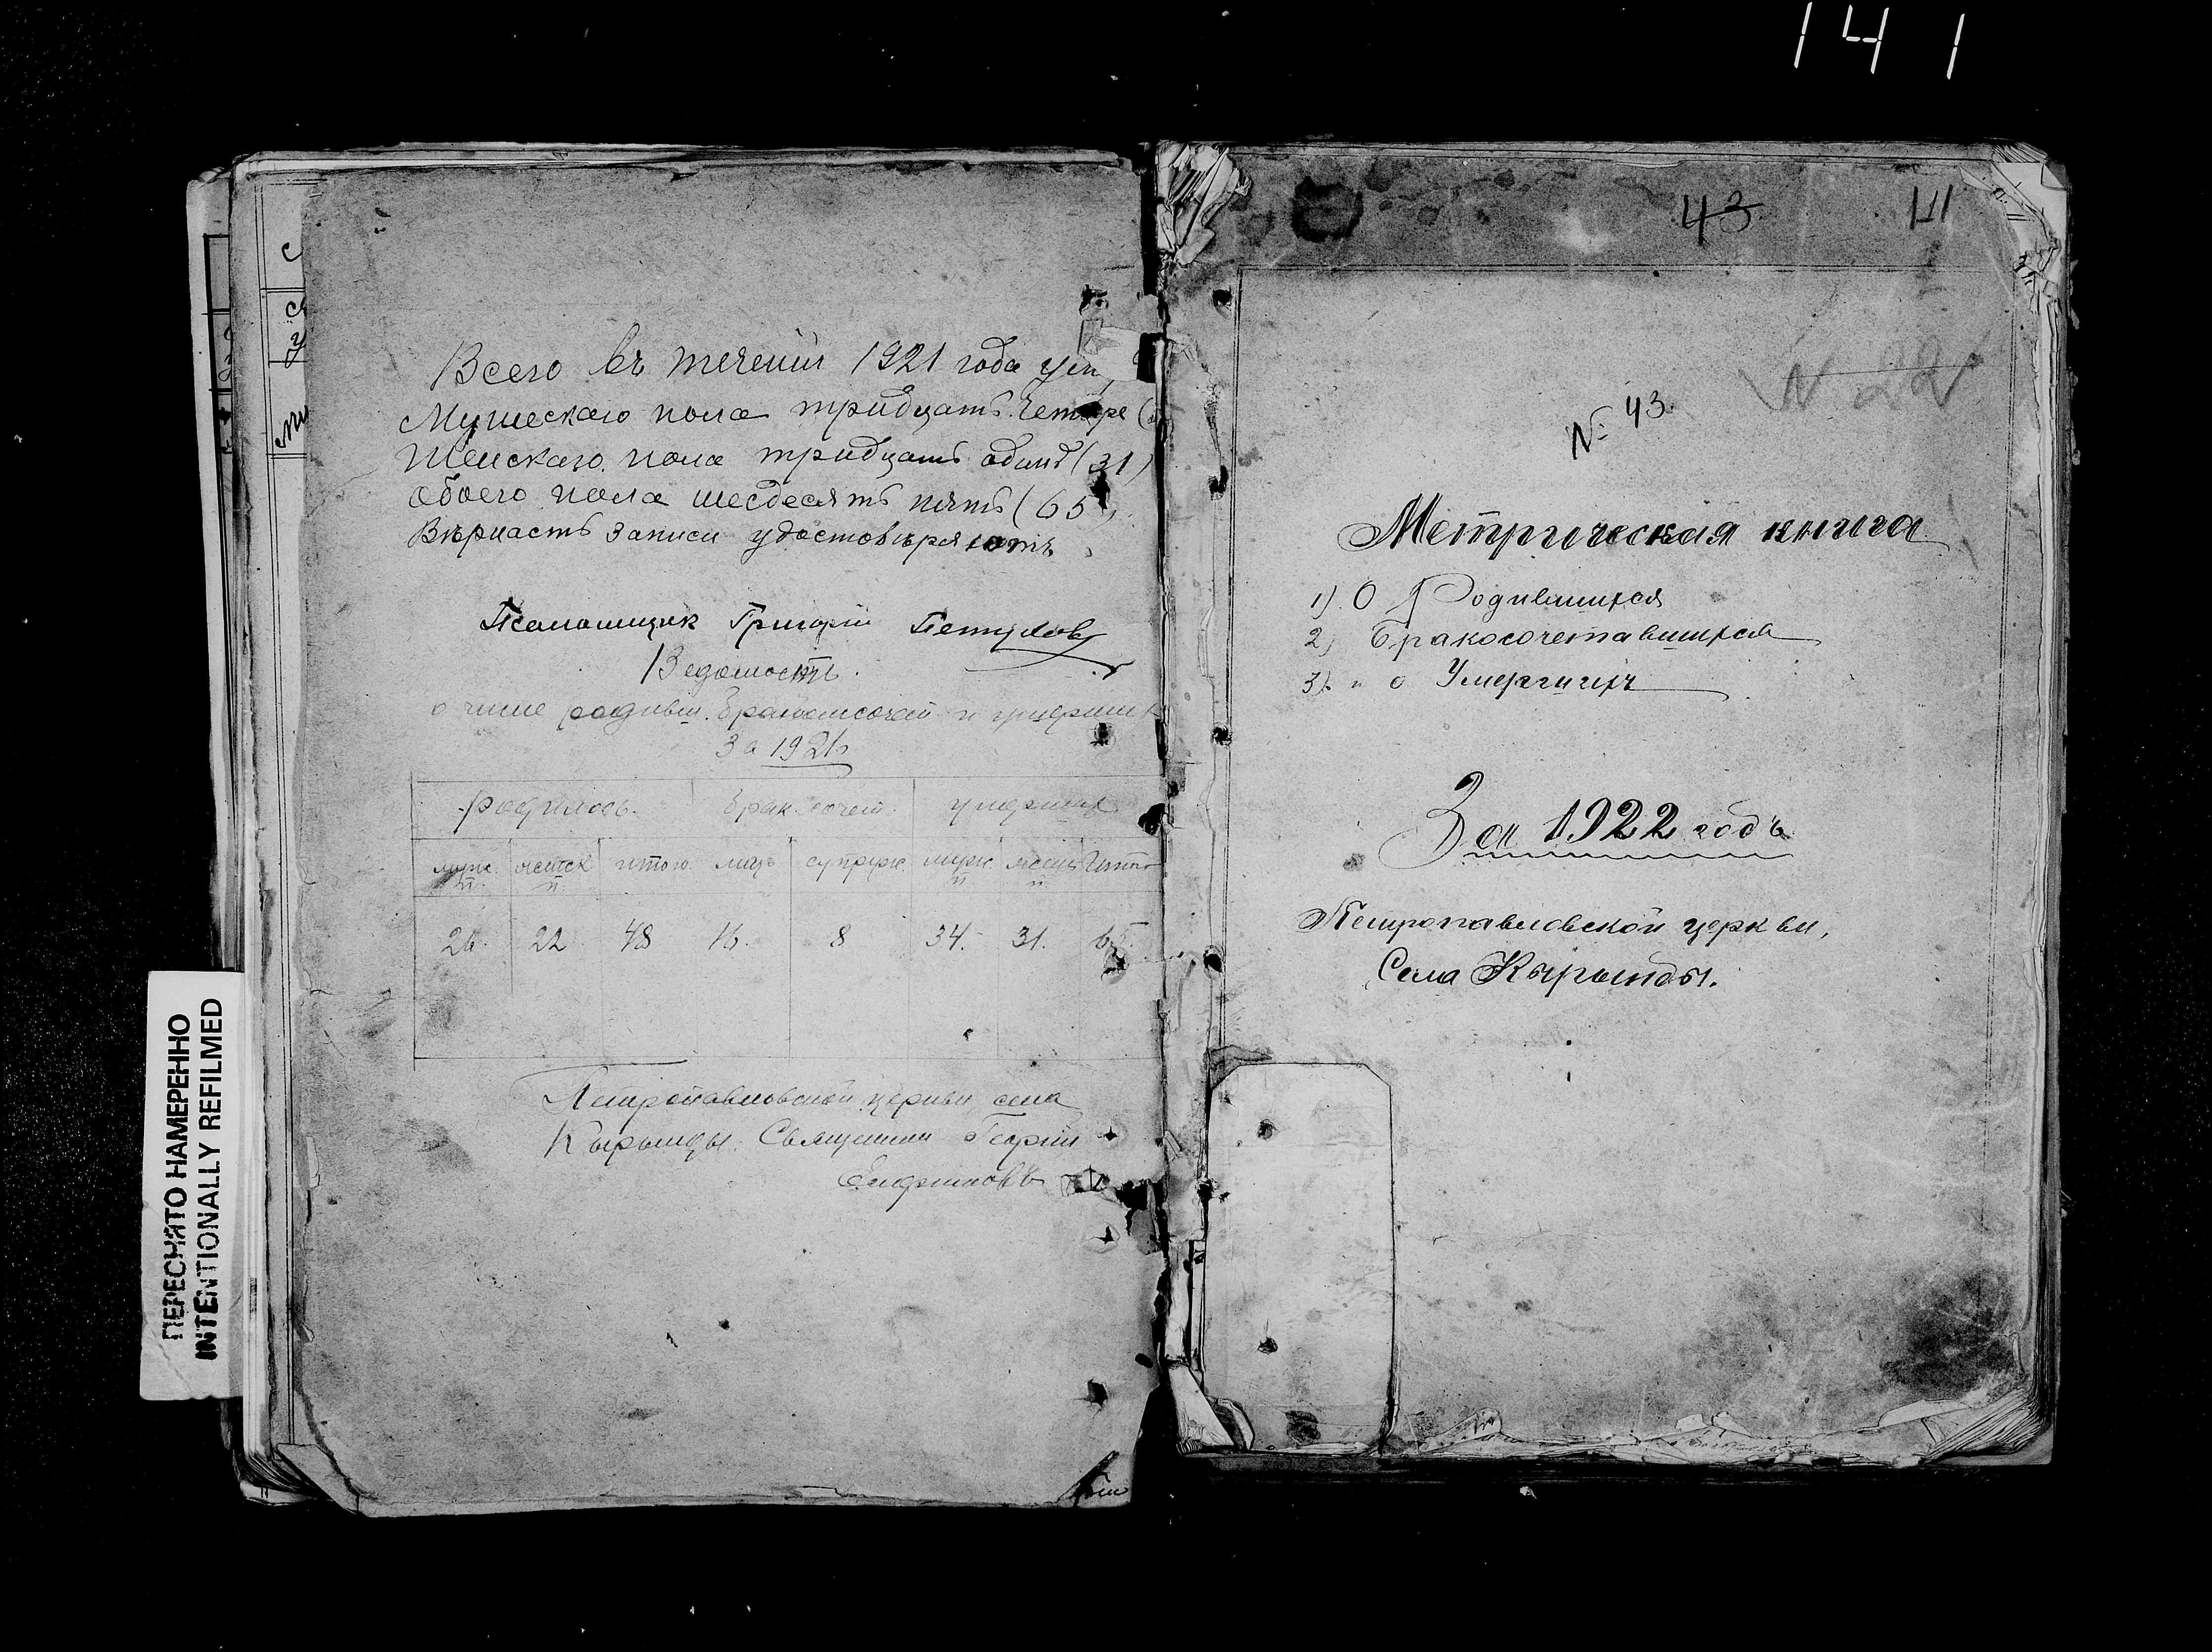 141
Всего въ теченіи 1921 года
Мужескаго пола тридцать четыре
Женскаго пола тридцать одинъ (31)
обоего пола шесдесять пять (65),
Вѣрность записи удостовѣряютъ
Псаломщик Григорій Петухов
Ведомость.
о числе родивш. бракосочет и умерших
За 1921
родилось. брак. сочет. умерших
муж. п. женск п итого. лицъ супруж. муж п женщ п Итого
26. 22 48 16. 8 34. 31. 65.
Петропавловской церкви села
Кырынды. Священник Георгій
43 141
N 22
№ 43.
Метрическая книга
1). О Родившихся
2) Бракосочетавшихся
3). " о Умерших
За 1922 годъ
Петропавловской церкви,
Села Кырынды.
ПЕРЕСНЯТО НАМЕРЕННО
INTENTIONALLY REFILMED